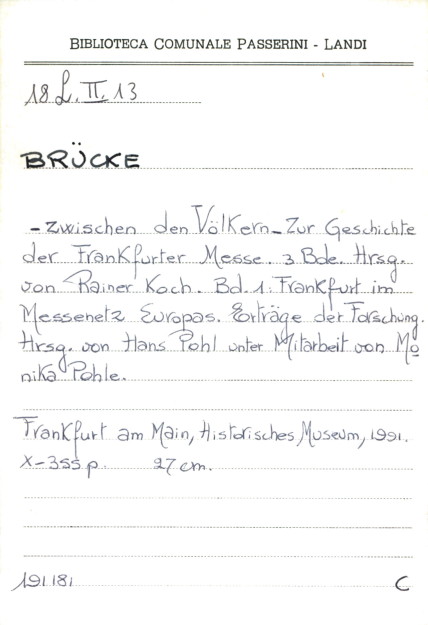 BIBLIOTECA COMUNALE PASSERINI - LANDI
18 L. II. 13
BRÜCKE
- zwischen den Völkern - Zur Geschichte
der Frankfurter Messe. 3 Bde. Hrsg.
von Rainer Koch. Bd. 1: Frankfurt im
Messenetz Europas. Erträge der Forschung.
Hrsg. von Hans Pohl unter Mitarbeit von Mo
nika Pohle.
Frankfurt am Main, Historisches Museum, 1991.
X-355 p. 27 cm.
191181
C